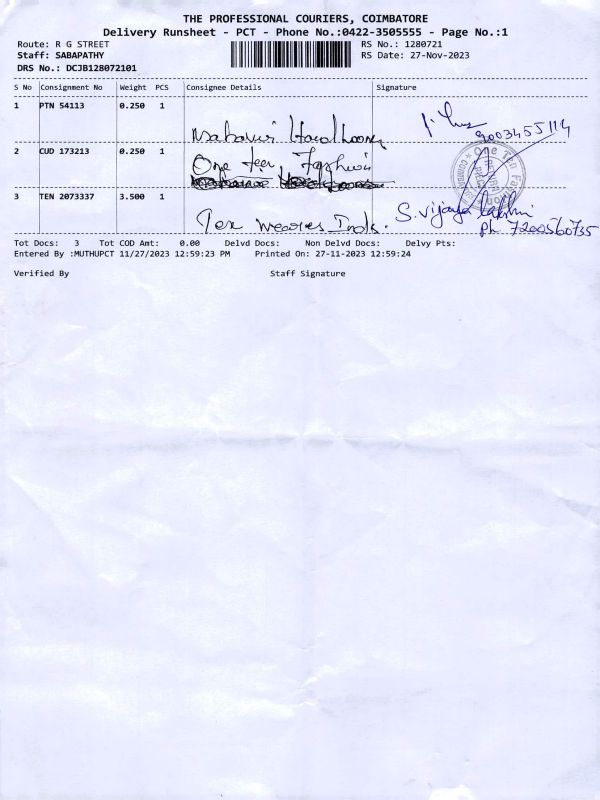 THE PROFESSIONAL COURIERS, COIMBATORE
Delivery Runsheet - PCT - Phone No.:0422-3505555 - Page No.:1
Route: R G STREET RS No.: 1280721
Staff: SABAPATHY RS Date: 27-Nov-2023
DRS No.: DCJB128072101
S No Consignment No Weight PCS Consignee Details Signature
1 PTN 54113 0.250 1
9003455114
2 CUD 173213 0.250 1 One Ten
3 TEN 2073337 3.500 1
Tex S. Vijaya lakshmi
Ph 7200560735
Tot Docs: 3 Tot COD Amt: 0.00 Delvd Docs: Non Delvd Docs: Delvy Pts:
Entered By :MUTHUPCT 11/27/2023 12:59:23 PM Printed On: 27-11-2023 12:59:24
Verified By Staff Signature